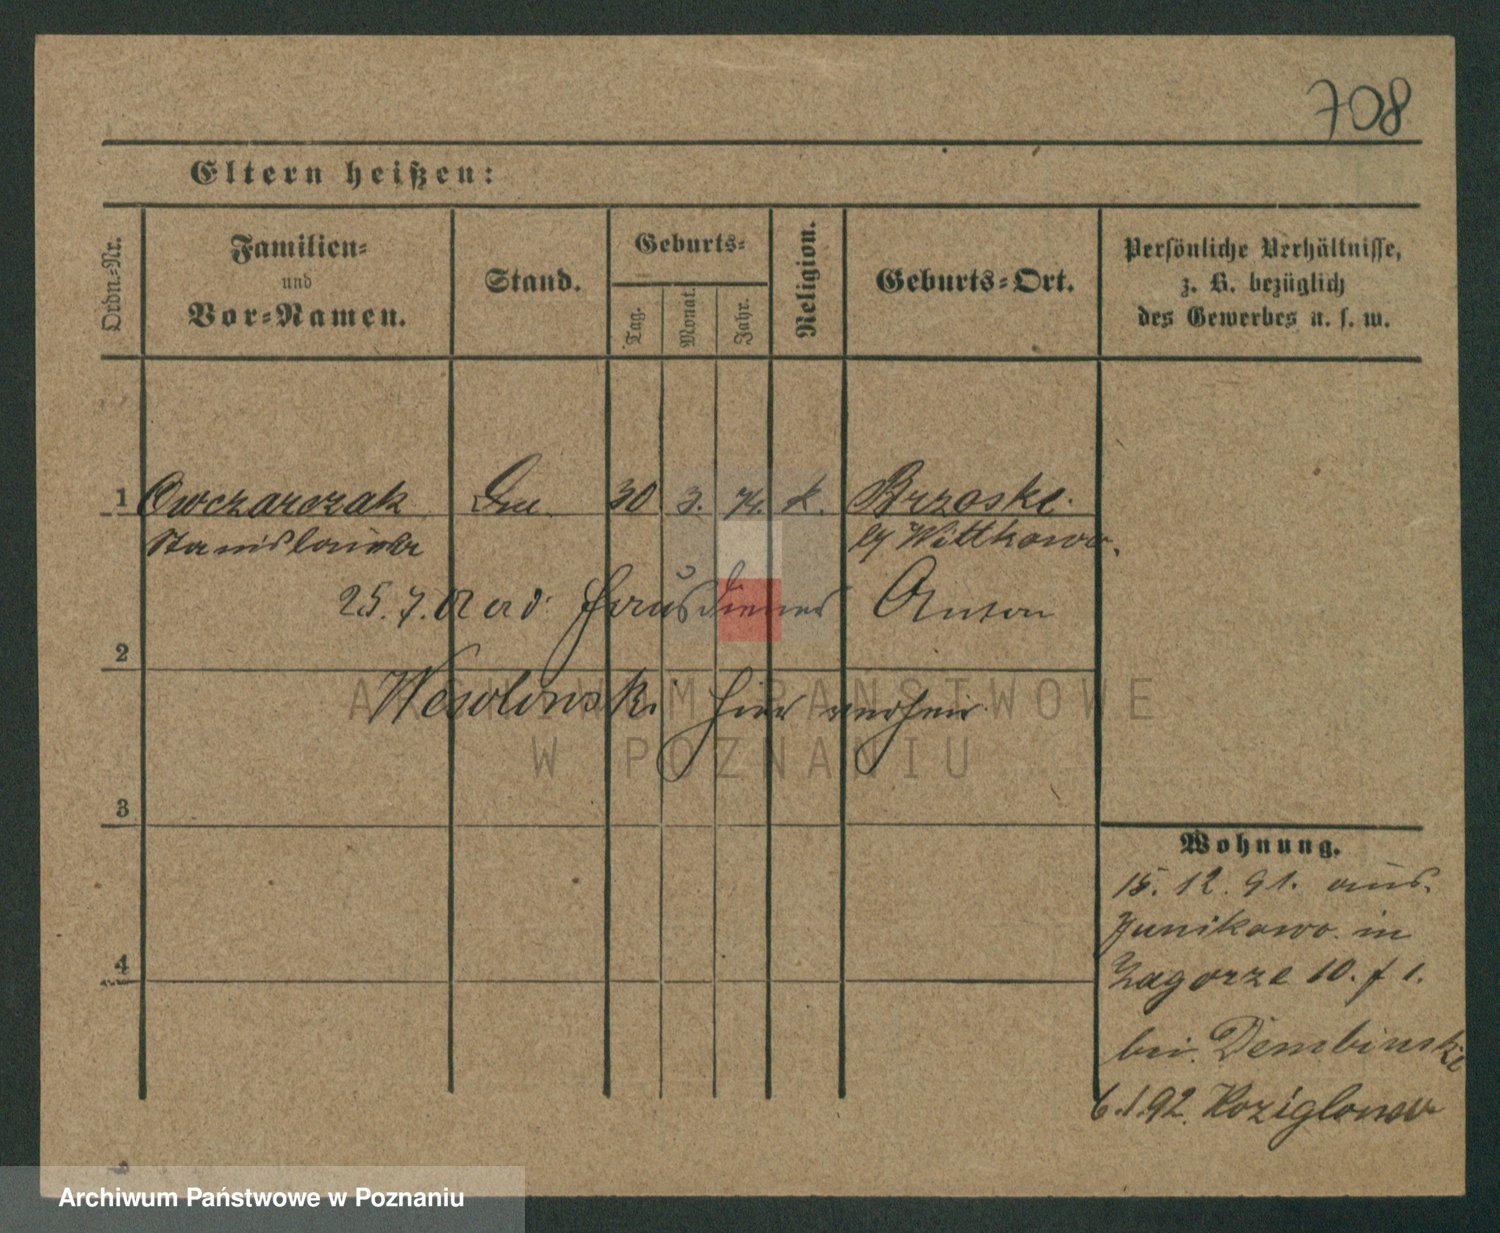 708
Eltern heißen:
Ordn.-Nr.
Familien-
und
Vor-Namen.
Stand.
Geburts-
Tag.
Monat.
Jahr.
Religion.
Geburts-Ort.
Persönliche Verhältnisse,
z. B. bezüglich
des Gewerbes u. s. w.
1 Owczarczak 30 3. 74. k. Brzoske.
Stanislawa by Wittkowo.
25. 7. 01 a d. Hausdiener Anton
2
Wesolowski hier verheir.
3
4
Wohnung.
15. 12. 91. aus
Junikowo in
Zagorze 10. f 1.
bei Dembinski
6.1.92. Koziglowo
ARCHIWUM PAŃSTWOWE
W POZNANIU
Archiwum Państwowe w Poznaniu